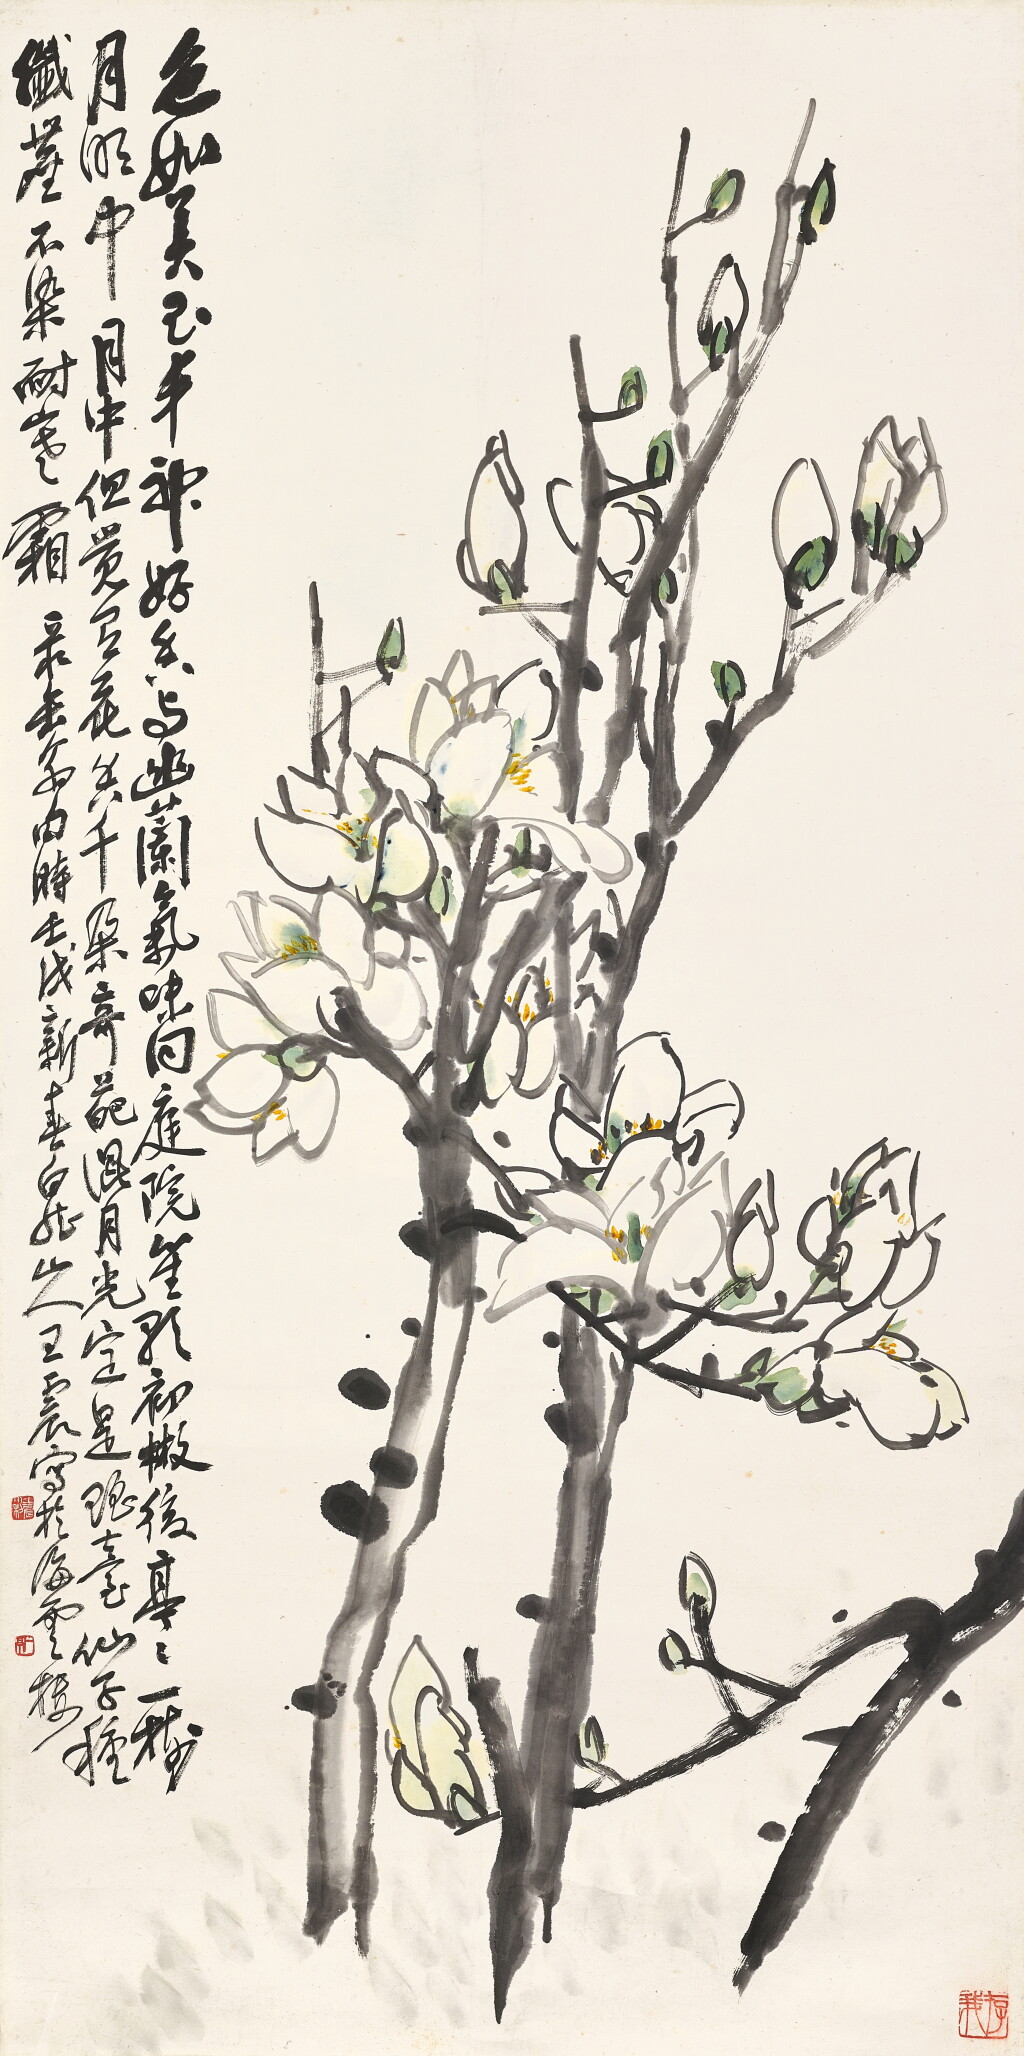 色如美玉丰神好香与幽蘭氣味同庭院笙歌初散後亭〻一樹
月明中月中但覺有花香千朵奇葩混月光定是瑤臺仙子種
纖塵不染耐寒霜录缶翁句時壬戌新春白龍山人王震寫於海雲樓